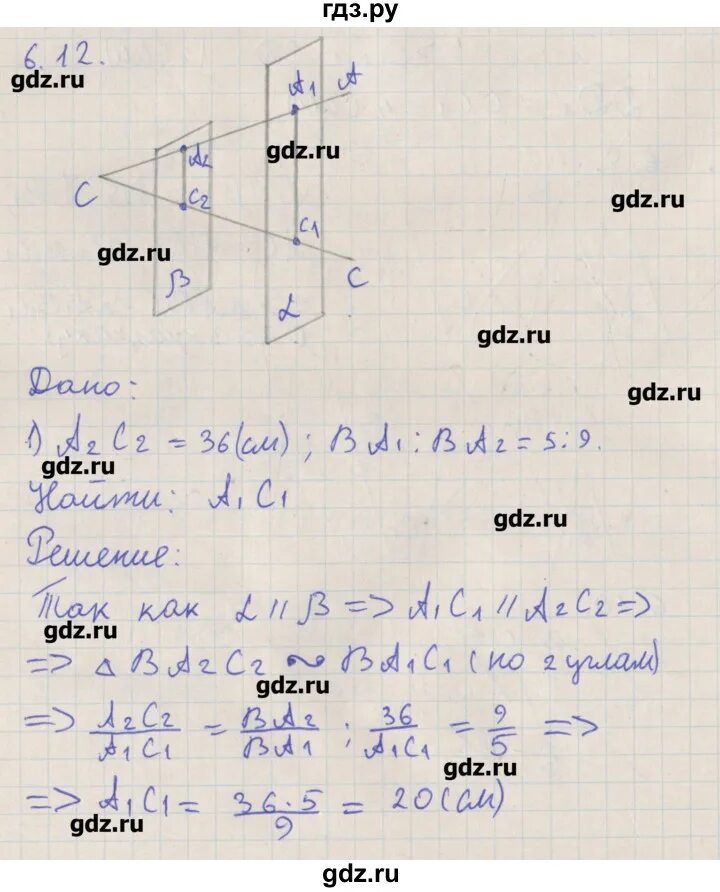 гдз.ру
6.12.
gdz.ru
A₁ A
gdz.ru
A₂
C
C₂
gdz.ru
C₁
gdz.ru
β
C
α
gdz.ru
Дано:
gdz.ru
1) A₂C₂ = 36(см) ; BA₁ : BA₂ = 5:9.
gdz.ru
Найти: A₁C₁
gdz.ru
Решение:
Так как α || β => A₁C₁ || A₂C₂ =>
gdz.ru
=> △BA₂C₂ ~ BA₁C₁ (по 2 углам)
gdz.ru
=> A₂C₂/A₁C₁ = BA₂/BA₁ ; 36/A₁C₁ = 9/5 =>
gdz.ru
=> A₁C₁ = 36·5/9 = 20(см)
gdz.ru
gdz.ru